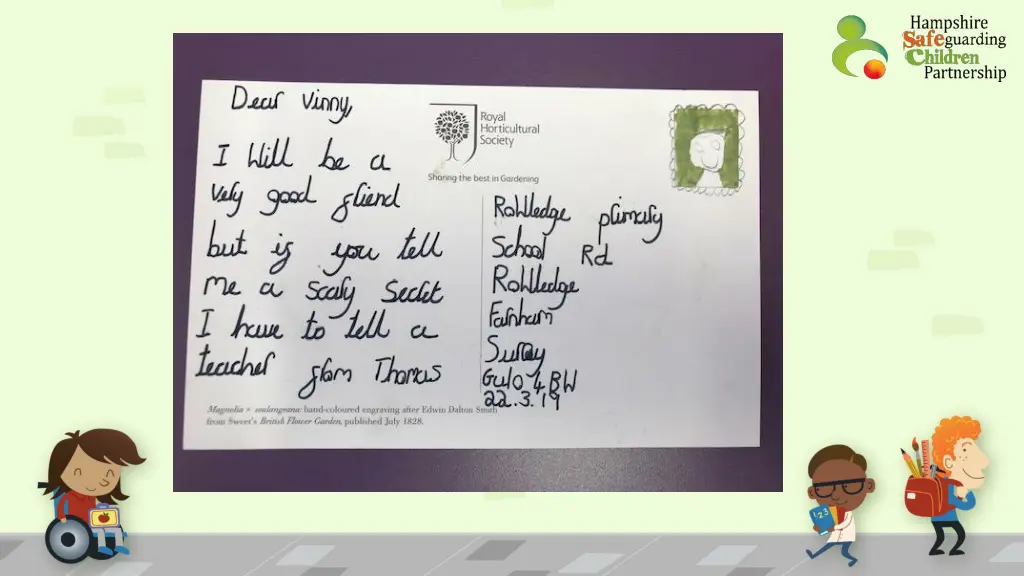 Hampshire
Safeguarding
Children
Partnership
Dear Vinny,
I Will be a
very good friend
but if you tell
me a scary Secret
I have to tell a
teacher from Thomas
Royal
Horticultural
Society
Sharing the best in Gardening
Rowledge primary
School Rd
Rowledge
Farnham
Surray
GU10 4BW
22.3.19
Magnolia × soulangeana: hand-coloured engraving after Edwin Dalton Smith
from Sweet's British Flower Garden, published July 1828.
123